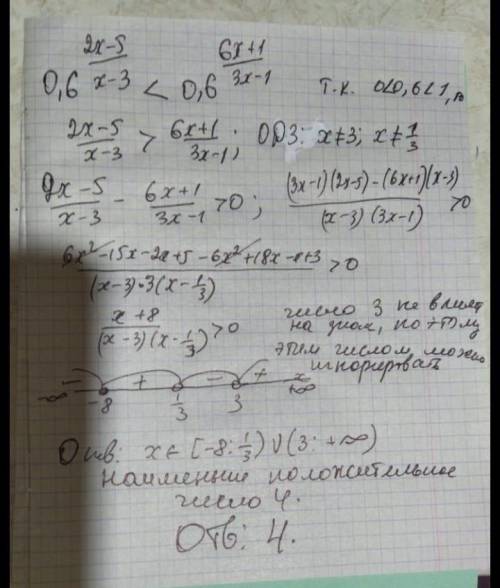 0,6^((2x-5)/(x-3)) < 0,6^((6x+1)/(3x-1)) т.к. 0<0,6<1, то
(2x-5)/(x-3) > (6x+1)/(3x-1); ОДЗ: x≠3; x≠1/3
(2x-5)/(x-3) - (6x+1)/(3x-1) >0; ((3x-1)(2x-5)-(6x+1)(x-3))/((x-3)(3x-1)) >0
(6x²-15x-2x+5-6x²+18x-x+3)/((x-3)·3(x-1/3)) >0
(x+8)/((x-3)(x-1/3)) >0
число 3 не влияет
на знак, поэтому
этим числом можно
игнорировать
- + - +
-∞ -8 1/3 3 x +∞
Отв: x∈[-8; 1/3)∪(3; +∞)
Наименьшее положительное
число 4.
Отв: 4.